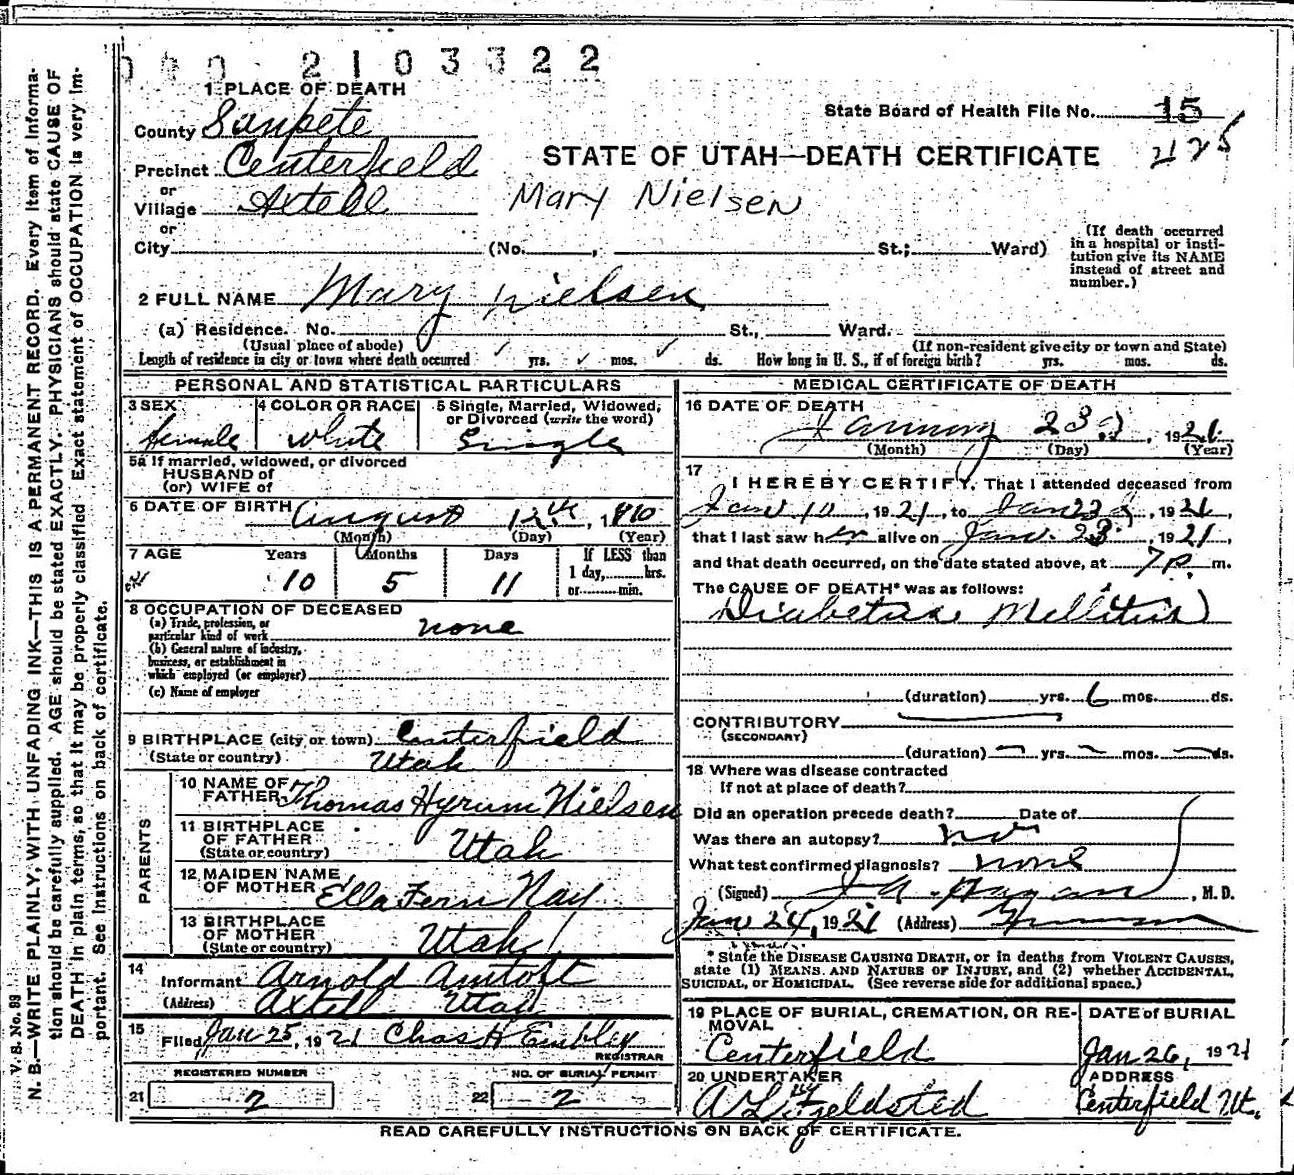 0 0 0 2 1 0 3 3 2 2
1 PLACE OF DEATH
State Board of Health File No. 15
County Sanpete
425
STATE OF UTAH—DEATH CERTIFICATE
Precinct Centerfield
or
Village Axtell
Mary Nielsen
or
City (No. , St.; Ward)
(If death occurred
in a hospital or insti-
tution give its NAME
instead of street and
number.)
2 FULL NAME Mary Nielsen
(a) Residence. No. St., Ward.
(Usual place of abode) (If non-resident give city or town and State)
Length of residence in city or town where death occurred yrs. mos. ds. How long in U. S., if of foreign birth? yrs. mos. ds.
PERSONAL AND STATISTICAL PARTICULARS
3 SEX 4 COLOR OR RACE 5 Single, Married, Widowed,
or Divorced (write the word)
female white Single
5a If married, widowed, or divorced
HUSBAND of
(or) WIFE of
6 DATE OF BIRTH August 12th, 1910
(Month) (Day) (Year)
7 AGE Years Months Days If LESS than
1 day, hrs.
or min.
10 5 11
8 OCCUPATION OF DECEASED
(a) Trade, profession, or
particular kind of work none
(b) General nature of industry,
business, or establishment in
which employed (or employer)
(c) Name of employer
9 BIRTHPLACE (city or town) Centerfield
(State or country) Utah
PARENTS
10 NAME OF
FATHER Thomas Hyrum Nielsen
11 BIRTHPLACE
OF FATHER
(State or country) Utah
12 MAIDEN NAME
OF MOTHER Ella Fern Nay
13 BIRTHPLACE
OF MOTHER
(State or country) Utah
14
Informant Arnold Amtoft
(Address) Axtell Utah
15
Filed Jan 25, 1921 Chas H Embley
REGISTRAR
REGISTERED NUMBER NO. OF BURIAL PERMIT
21 2 22 2
MEDICAL CERTIFICATE OF DEATH
16 DATE OF DEATH
January 23, 1921
(Month) (Day) (Year)
17
I HEREBY CERTIFY, That I attended deceased from
Jan 10, 1921, to Jan 23, 1921
that I last saw her alive on Jan. 23, 1921,
and that death occurred, on the date stated above, at 7 P. m.
The CAUSE OF DEATH* was as follows:
Diabetus Mellitus
(duration) yrs. 6 mos. ds.
CONTRIBUTORY
(SECONDARY)
(duration) yrs. mos. ds.
18 Where was disease contracted
If not at place of death?
Did an operation precede death? Date of
Was there an autopsy? no
What test confirmed diagnosis? none
(Signed) J A. Hagan, M. D.
Jan 24, 1921 (Address)
* State the DISEASE CAUSING DEATH, or in deaths from VIOLENT CAUSES,
state (1) MEANS AND NATURE OF INJURY, and (2) whether ACCIDENTAL,
SUICIDAL, or HOMICIDAL. (See reverse side for additional space.)
19 PLACE OF BURIAL, CREMATION, OR RE-
MOVAL
DATE of BURIAL
Centerfield Jan 26, 1921
20 UNDERTAKER ADDRESS
A L Fjeldsted Centerfield Ut.
READ CAREFULLY INSTRUCTIONS ON BACK OF CERTIFICATE.
V. S. No. 89
N. B.—WRITE PLAINLY, WITH UNFADING INK—THIS IS A PERMANENT RECORD. Every item of informa-
tion should be carefully supplied. AGE should be stated EXACTLY. PHYSICIANS should state CAUSE OF
DEATH in plain terms, so that it may be properly classified. Exact statement of OCCUPATION is very im-
portant. See instructions on back of certificate.